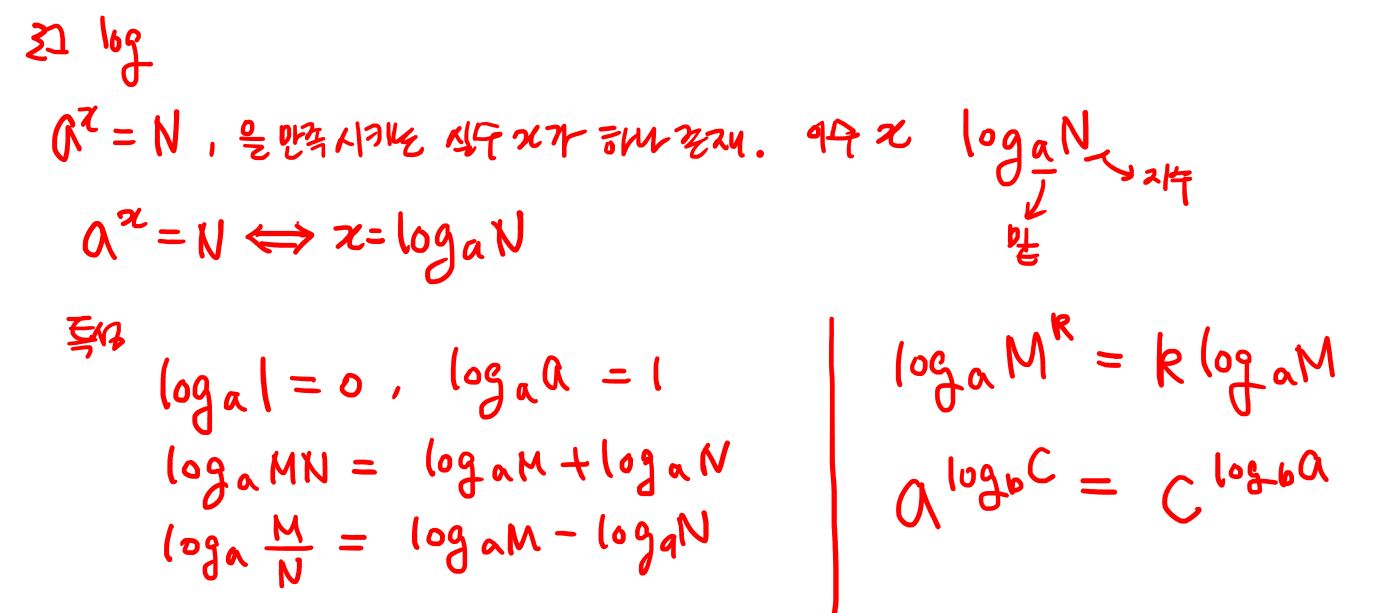 로그 log
aˣ = N , 을 만족 시키는 실수 x가 하나 존재. 이수 x logₐN → 지수
밑
aˣ = N ⟺ x = logₐN
특성
logₐ1 = 0 , logₐa = 1
logₐMN = logₐM + logₐN
logₐ M/N = logₐM - logₐN
logₐMᵏ = k logₐM
a^(log_b C) = C^(log_b a)